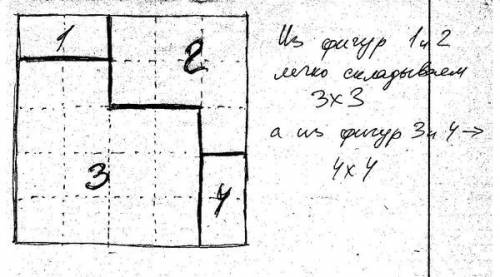 1
2
3
4
Из фигур 1 и 2
легко складываем
3х3
а из фигур 3 и 4 →
4х4